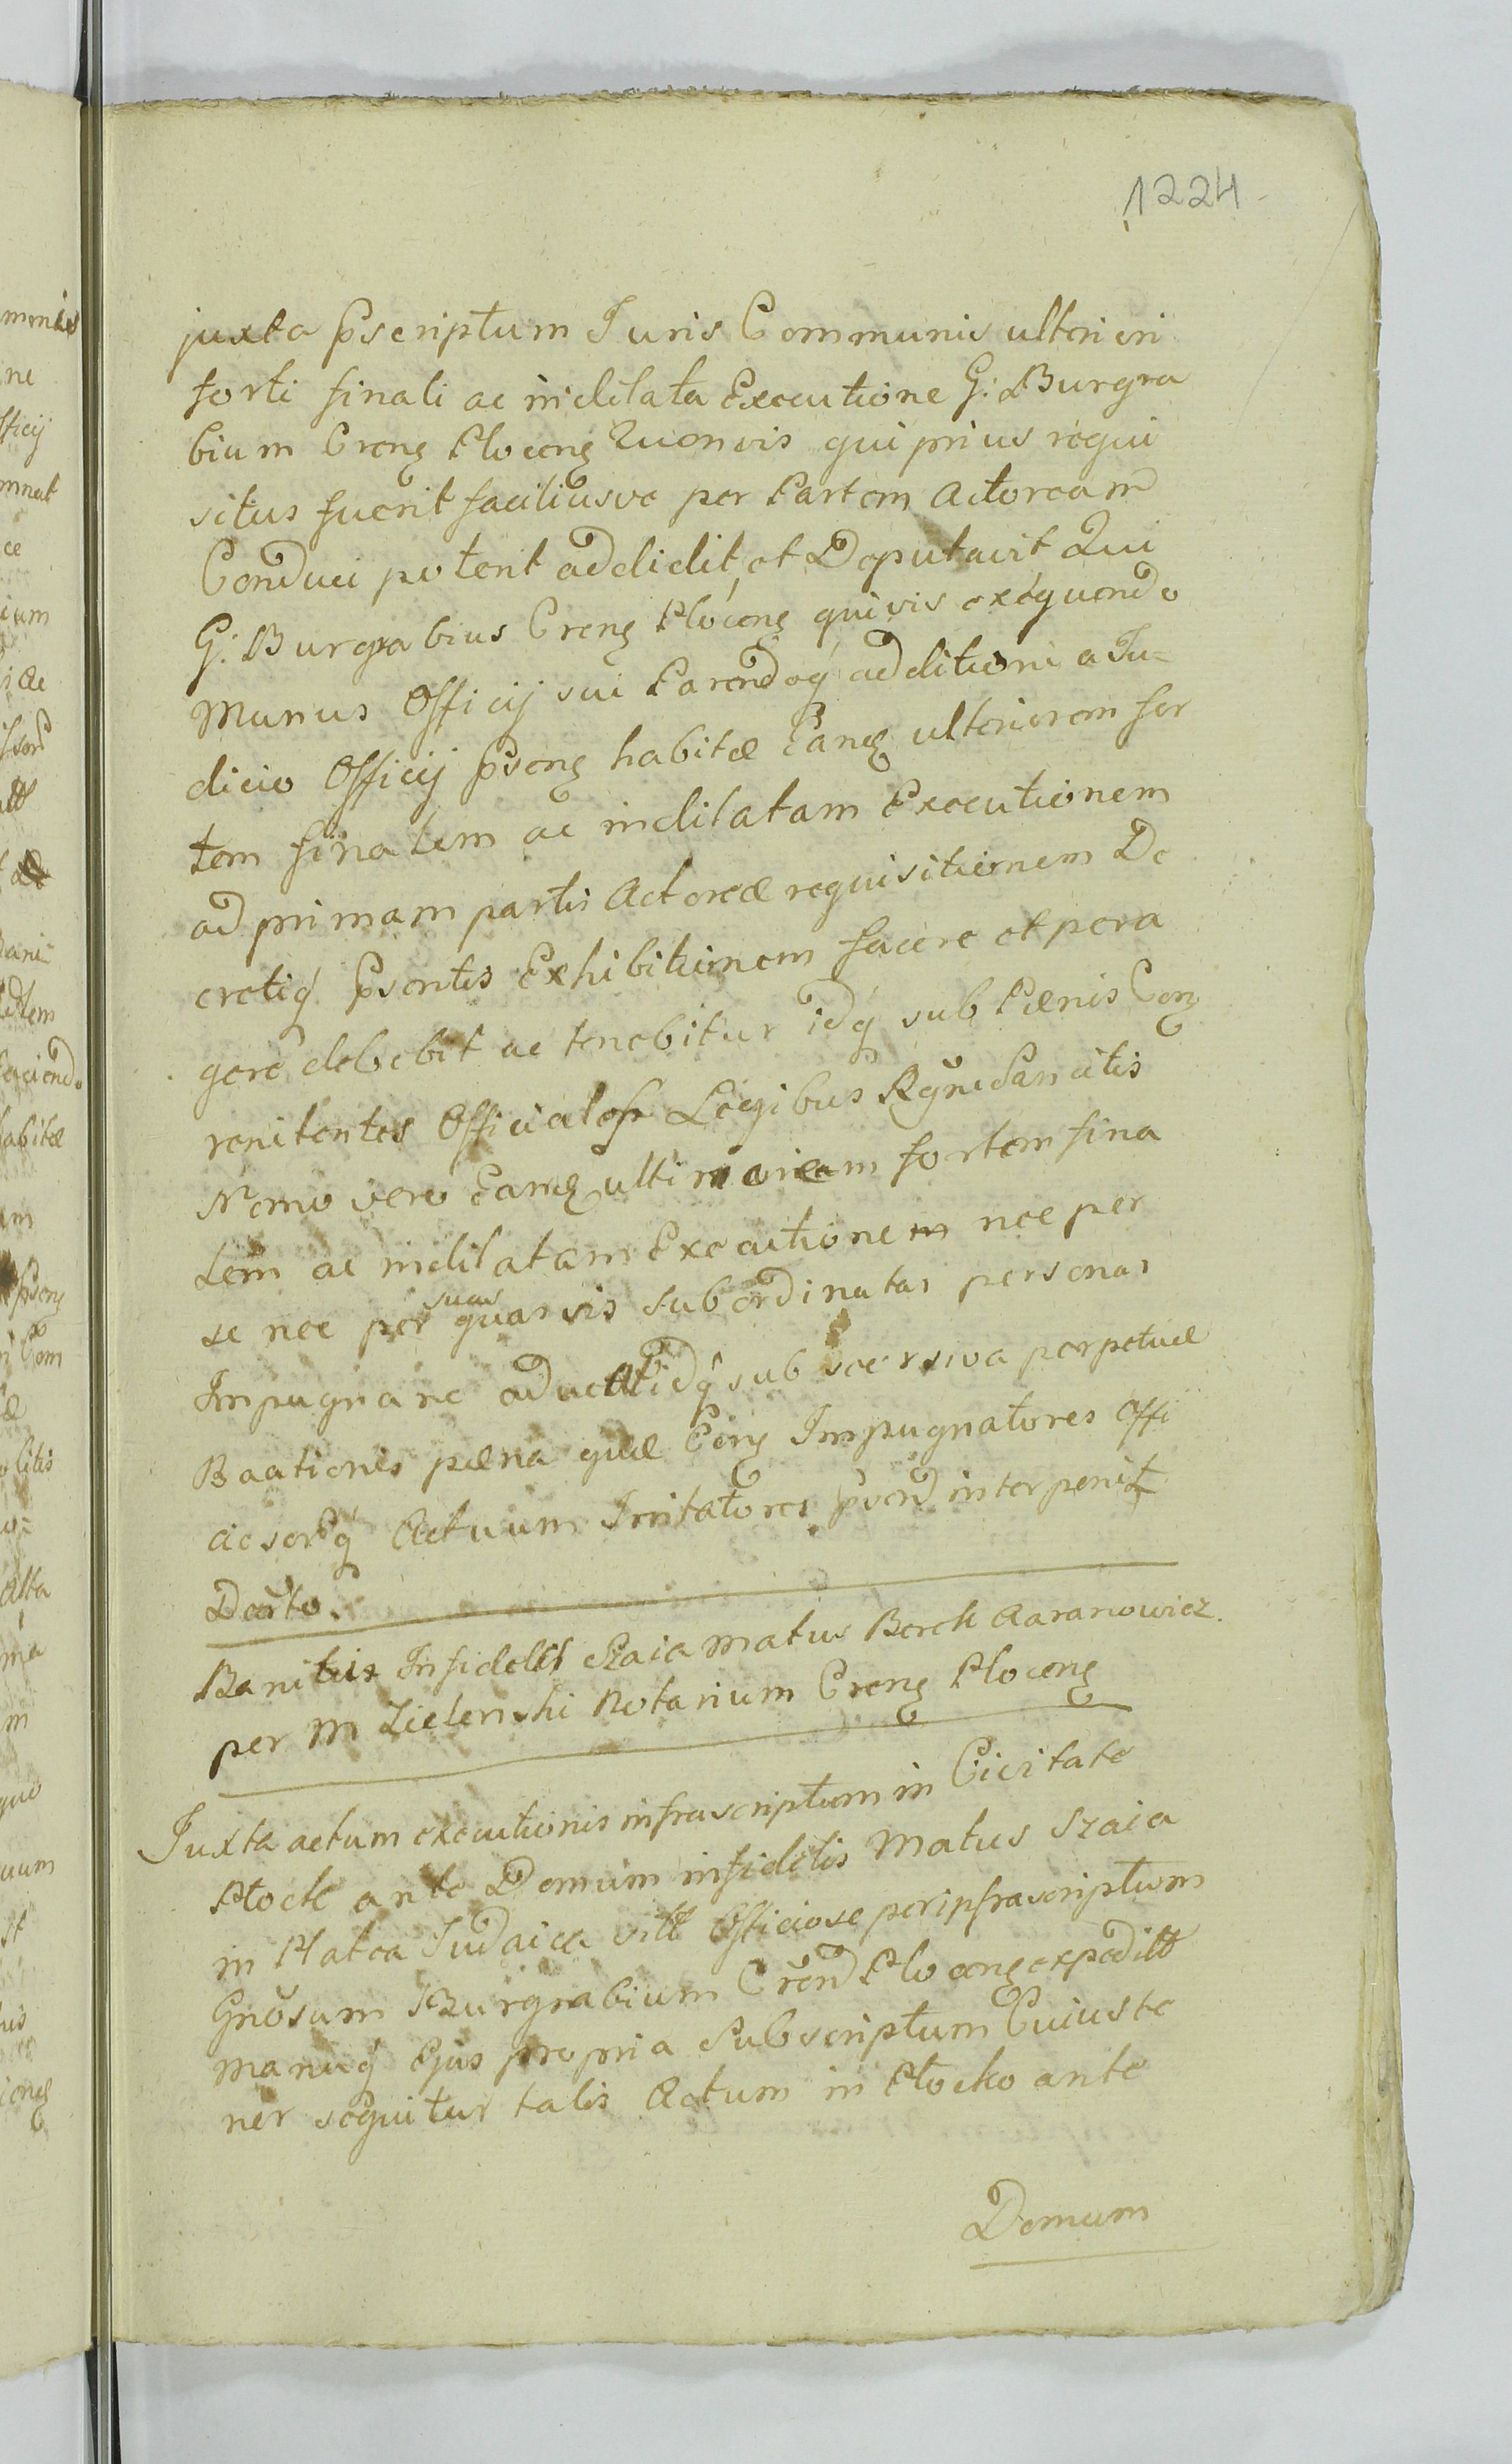 1224
juxta Pscriptum Juris Communis ulteriori
forti finali ac indilata Executione G: Burgra
bium Creng Ploceng Quonvis qui prius requi
situs fuerit faciliusve per Partem Actoream
Conduci poterit addidit et Deputavit Qui
G: Burgrabius Creng Ploceng quivis exequendo
Munus Officij sui Parendoq additioni a Ju=
dicio Officij Pseng habitæ Eang ulteriorem for
tem finalem ac indilatam Executionem
ad primam partis Actoreæ requisitionem De
cretiq Psentis Exhibitionem facere et pera
gere debebit ac tenebitur idq sub Pænis Cong
renitentes Officiales Legibus Rgni Sancitis
Nemo vero Eang ultimariam fortem fina
lem ac indilatam Executionem nec per
se nec per suas quasvis subordinatas personas
Impugnare audeat idq sub recersiva perpetuæ
Baationis pæna quæ Cong Impugnatores Offi
Actuum Irritatores psend interponit
Dcrto.
Banitus Infidelis Szaia Matus Berek Aaranowicz.
per M Zielenski Notarium Creng Ploceng
Juxta actum executionis infrascriptum in Civitate
Plock ante Domum infidelis Matus Szaia
in Platea Judaica sitt Officiose per infrascriptum
Gnosum Burgrabium Crend Ploceng expeditt
manuq Ejus propria Subscriptum Cuius te
nor sequitur talis Actum in Plocko ante
Domum